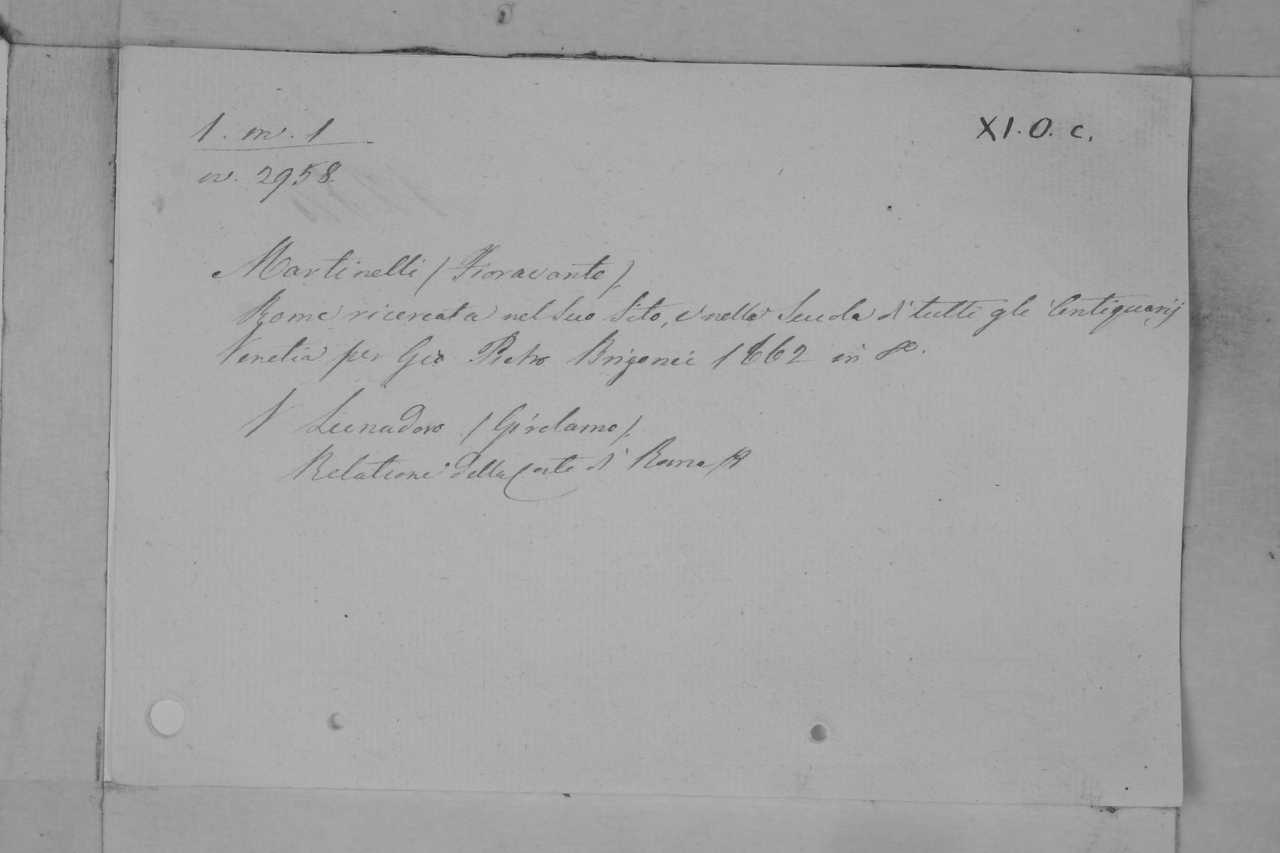 1. m. 1
XI. O. c.
m. 2958.
Martinelli / Fioravante /
Roma ricercata nel Suo Sito, e nella Scuola di tutti gli Antiquarij
Venetia per Gio Pietro Brigonci 1662 in 8o.
Lunadoro / Girolamo /
Relatione della Corte di Roma